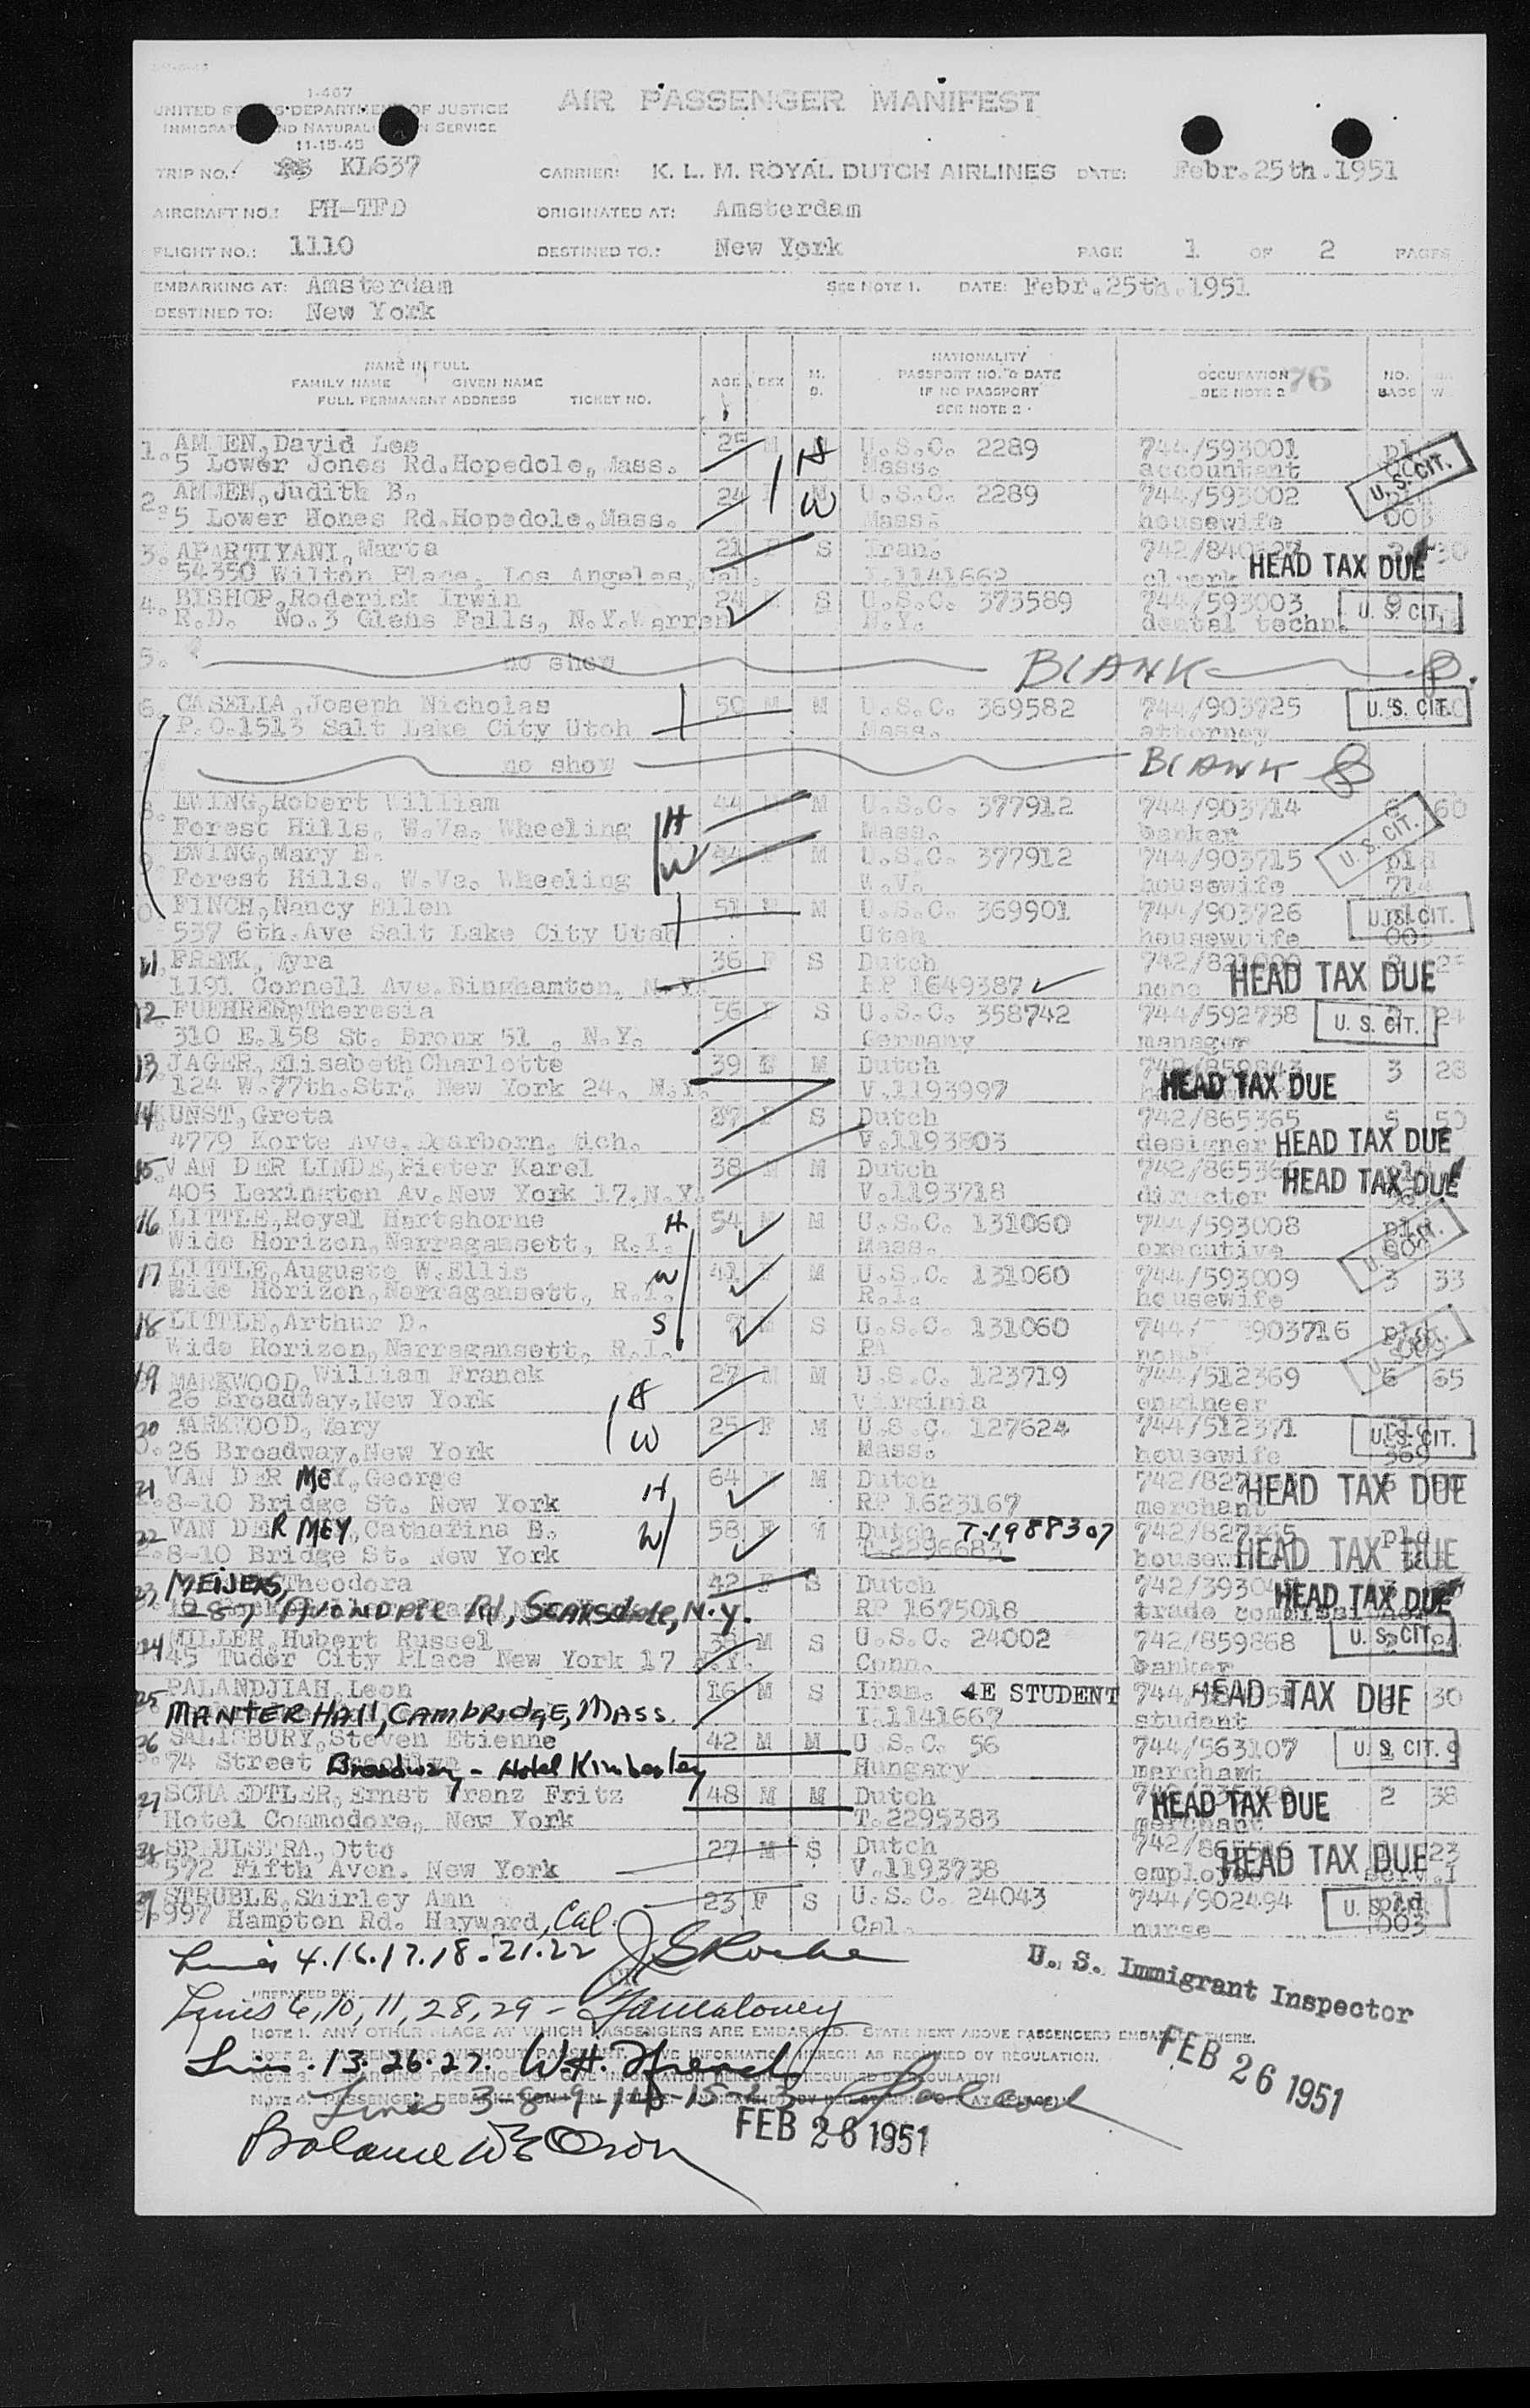 I-467
UNITED STATES DEPARTMENT OF JUSTICE
IMMIGRATION AND NATURALIZATION SERVICE
11-15-45
AIR PASSENGER MANIFEST
TRIP NO.: KL637 CARRIER: K. L. M. ROYAL DUTCH AIRLINES DATE: Febr.25th.1951
AIRCRAFT NO.: PH-TFD ORIGINATED AT: Amsterdam
FLIGHT NO.: 1110 DESTINED TO.: New York PAGE 1 OF 2 PAGES
EMBARKING AT: Amsterdam SEE NOTE 1. DATE: Febr.25th.1951
DESTINED TO: New York
NAME IN FULL
FAMILY NAME GIVEN NAME
FULL PERMANENT ADDRESS TICKET NO.
AGE SEX M. S.
NATIONALITY
PASSPORT NO. & DATE
IF NO PASSPORT
SEE NOTE 2
OCCUPATION 76
SEE NOTE 2
NO. BAGS
1. David Lee 25 U.S.C. 2289 744/593001
5 Lower Jones Rd.Hopedole, Mass. H Mass. accountant U.S. CIT.
2. Judith B. 24 U.S.C. 2289 744/593002
5 Lower Hones Rd.Hopedole, Mass. W Mass. housewife 003
3. APARTIYANI, Marta 21 F S Iran.
54350 Wilton Place, Los Angeles, Cal. I.1141662 HEAD TAX DUE
4. BISHOP, Roderick Irwin 24 S U.S.C. 373589 744/593003
R.D. No.3 Glens Falls, N.Y.Warren N.Y. dental techn. U. S. CIT.
5. no show BLANK
6. CASELIA, Joseph Nicholas 50 M M U.S.C. 369582 744/903725 U. S. CIT.
P.O.1513 Salt Lake City Utoh Mass. attorney
no show BLANK
EWING, Robert William 44 M U.S.C. 377912 744/903714 6 60
Forest Hills, W.Va. Wheeling H Mass. banker U.S. CIT.
EWING, Mary E. 44 M U.S.C. 377912 744/903715
Forest Hills, W.Va. Wheeling W W.V. housewife 714
FINCH, Nancy Ellen 51 F M U.S.C. 369901 744/903726 U.S. CIT.
537 6th.Ave Salt Lake City Utah Utah housewife 003
11 FRENK, Myra 36 F S Dutch
1191 Cornell Ave.Binghamton, N.Y. RP 1649387 none HEAD TAX DUE
12 FUEHRER, Theresia 56 F S U.S.C. 358742 744/592738 U. S. CIT. 24
310 E.158 St. Bronx 51 , N.Y. Germany manager
13 JAGER, Elisabeth Charlotte 39 F M Dutch 3 28
124 W.77th.Str. New York 24, N.Y. V.1193997 HEAD TAX DUE
14 KUNST, Greta S Dutch 742/865365 5 50
4779 Korte Ave. Dearborn, Mich. V.1193803 designer HEAD TAX DUE
15. VAN DER LINDE, Pieter Karel 38 M M Dutch
405 Lexington Av.New York 17.N.Y. V.1193718 director HEAD TAX DUE
16 LITTLE, Royal Hartshorne H 54 M U.S.C. 131060 744/593008
Wide Horizon, Narragansett, R.I. Mass. executive
17 LITTLE, Auguste W.Ellis W 41 M U.S.C. 131060 744/593009 3 33
Wide Horizon, Narragansett, R.I. R.I. housewife
18 LITTLE, Arthur D. S 7 S U.S.C. 131060 744/ 903716
Wide Horizon, Narragansett, R.I. PA
19 MARKWOOD, William Franck 27 M M U.S.C. 123719 744/512369 6 65
26 Broadway, New York H Virginia engineer
20 MARKWOOD, Mary 25 F M U.S.C. 127624 744/512371 U.S. CIT.
26 Broadway, New York W Mass. housewife 369
21 VAN DER MEY, George 64 M Dutch
8-10 Bridge St. New York H RP 1623167 merchant HEAD TAX DUE
22 VAN DER MEY, Catharina B. 58 F M Dutch T-1988307
8-10 Bridge St. New York W T-2296683 HEAD TAX DUE
23 MEIJERS, Theodora 42 F S Dutch HEAD TAX DUE
287 AVONDALE Rd, SCARSdale, N.Y. RP 1675018 trade commissioner
24 MILLER, Hubert Russel M S U.S.C. 24002 742/859868 U. S. CIT.
45 Tudor City Place New York 17 N.Y. Conn. banker
25 PALANDJIAH, Leon 16 M S Iran. 4E STUDENT HEAD TAX DUE 30
MANTER HAll, CAMbRIdgE, MASS I.1141667 student
26 SALISBURY, Steven Etienne 42 M M U.S.C. 56 744/563107 U.S. CIT.
74 Street Broadway - Hotel Kimberley Hungary merchant
27 SCHAEDTLER, Ernst Franz Fritz 48 M M Dutch 2 38
Hotel Commodore, New York T.2295383 merchant HEAD TAX DUE
28 Otto 27 M S Dutch 23
572 Fifth Aven. New York V.1193738 employee HEAD TAX DUE
29 STRUBLE, Shirley Ann 23 F S U.S.C. 24043 744/902494
997 Hampton Rd. Hayward, Cal. Cal. nurse 003
Lines 4.16.17.18.21.22
U. S. Immigrant Inspector
PREPARED BY:
Lines 6, 10, 11, 28, 29 -
NOTE 1. ANY OTHER PLACE AT WHICH PASSENGERS ARE EMBARKED. STATE NEXT ABOVE PASSENGERS EMBARKED THERE.
FEB 26 1951
Lines 13.26.27. W.H.
Lines 3-8-9-14-15-23
FEB 26 1951
Balance